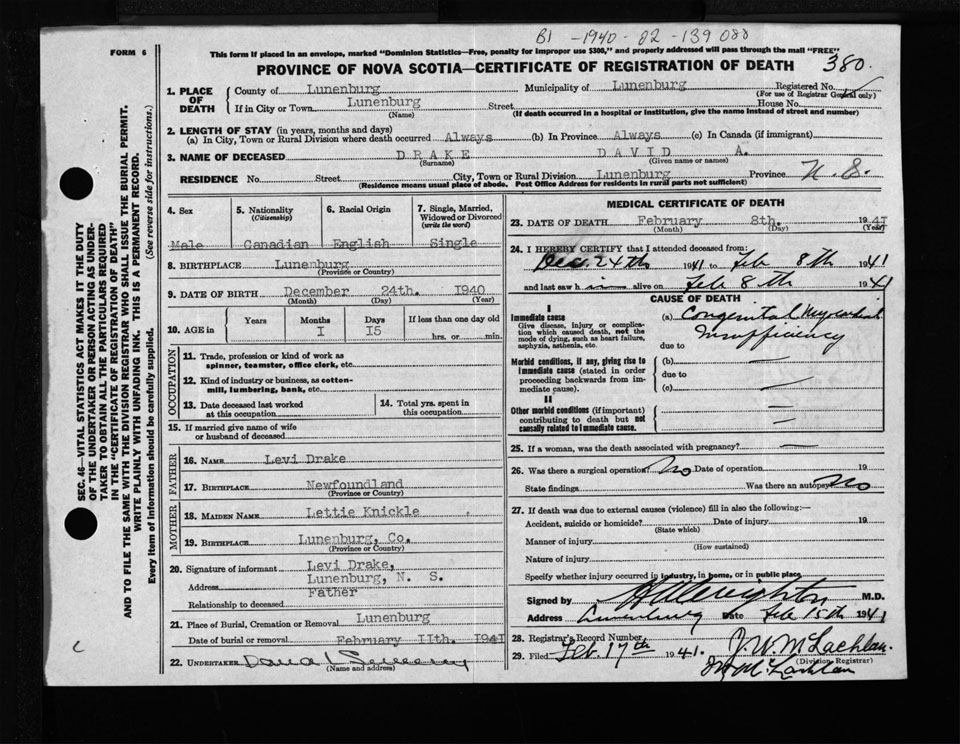 B1 - 1940 - 02 - 139 088
FORM 6
This form if placed in an envelope, marked "Dominion Statistics—Free, penalty for improper use $300," and properly addressed will pass through the mail "FREE"
PROVINCE OF NOVA SCOTIA—CERTIFICATE OF REGISTRATION OF DEATH
380.
1. PLACE OF DEATH
County of Lunenburg Municipality of Lunenburg Registered No.
(For use of Registrar General only)
If in City or Town Lunenburg Street House No.
(Name) (If death occurred in a hospital or institution, give the name instead of street and number)
2. LENGTH OF STAY (in years, months and days)
(a) In City, Town or Rural Division where death occurred Always (b) In Province Always (c) In Canada (if immigrant)
3. NAME OF DECEASED DRAKE DAVID A.
(Surname) (Given name or names)
RESIDENCE No. Street City, Town or Rural Division Lunenburg Province N. S.
(Residence means usual place of abode. Post Office Address for residents in rural parts not sufficient)
4. Sex 5. Nationality (Citizenship) 6. Racial Origin 7. Single, Married, Widowed or Divorced (write the word)
Male Canadian English Single
8. BIRTHPLACE Lunenburg
(Province or Country)
9. DATE OF BIRTH December 24th. 1940
(Month) (Day) (Year)
10. AGE in Years Months Days If less than one day old
I I5 hrs. or min.
OCCUPATION
11. Trade, profession or kind of work as spinner, teamster, office clerk, etc.
12. Kind of industry or business, as cotton-mill, lumbering, bank, etc.
13. Date deceased last worked at this occupation
14. Total yrs. spent in this occupation
15. If married give name of wife or husband of deceased
FATHER
16. NAME Levi Drake
17. BIRTHPLACE Newfoundland
(Province or Country)
MOTHER
18. MAIDEN NAME Lettie Knickle
19. BIRTHPLACE Lunenburg, Co.
(Province or Country)
20. Signature of informant Levi Drake,
Address Lunenburg, N. S.
Relationship to deceased Father
21. Place of Burial, Cremation or Removal Lunenburg
Date of burial or removal February IIth. 1941
22. UNDERTAKER
(Name and address)
MEDICAL CERTIFICATE OF DEATH
23. DATE OF DEATH February 8th. 1941
(Month) (Day) (Year)
24. I HEREBY CERTIFY that I attended deceased from:
Dec. 24th 1941 to Feb 8th 1941
and last saw h im alive on Feb 8th 1941
CAUSE OF DEATH
I
Immediate cause
Give disease, injury or complication which caused death, not the mode of dying, such as heart failure, asphyxia, asthenia, etc.
(a) Congenital Myocardial Insufficiency
due to
Morbid conditions, if any, giving rise to immediate cause (stated in order proceeding backwards from immediate cause).
(b)
due to
(c)
II
Other morbid conditions (if important) contributing to death but not causally related to immediate cause.
25. If a woman, was the death associated with pregnancy?
26. Was there a surgical operation No Date of operation 19
State findings Was there an autopsy No
27. If death was due to external causes (violence) fill in also the following:—
Accident, suicide or homicide? Date of injury 19
(State which)
Manner of injury
(How sustained)
Nature of injury
Specify whether injury occurred in industry, in home, or in public place
Signed by M.D.
Address Lunenburg Date Feb 15th 1941
28. Registrar's Record Number
29. Filed Feb. 17th 1941. J. W. McLachlan.
(Division Registrar)
McLachlan
SEC. 46—VITAL STATISTICS ACT MAKES IT THE DUTY
OF THE UNDERTAKER OR PERSON ACTING AS UNDER-
TAKER TO OBTAIN ALL THE PARTICULARS REQUIRED
IN THE "CERTIFICATE OF REGISTRATION OF DEATH"
AND TO FILE THE SAME WITH THE DIVISION REGISTRAR WHO SHALL ISSUE THE BURIAL PERMIT.
WRITE PLAINLY WITH UNFADING INK. THIS IS A PERMANENT RECORD.
Every item of information should be carefully supplied. (See reverse side for instructions.)